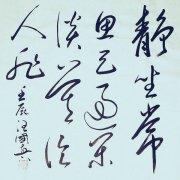 静坐常
思己过闲
谈莫论
人非
壬辰 汪國真